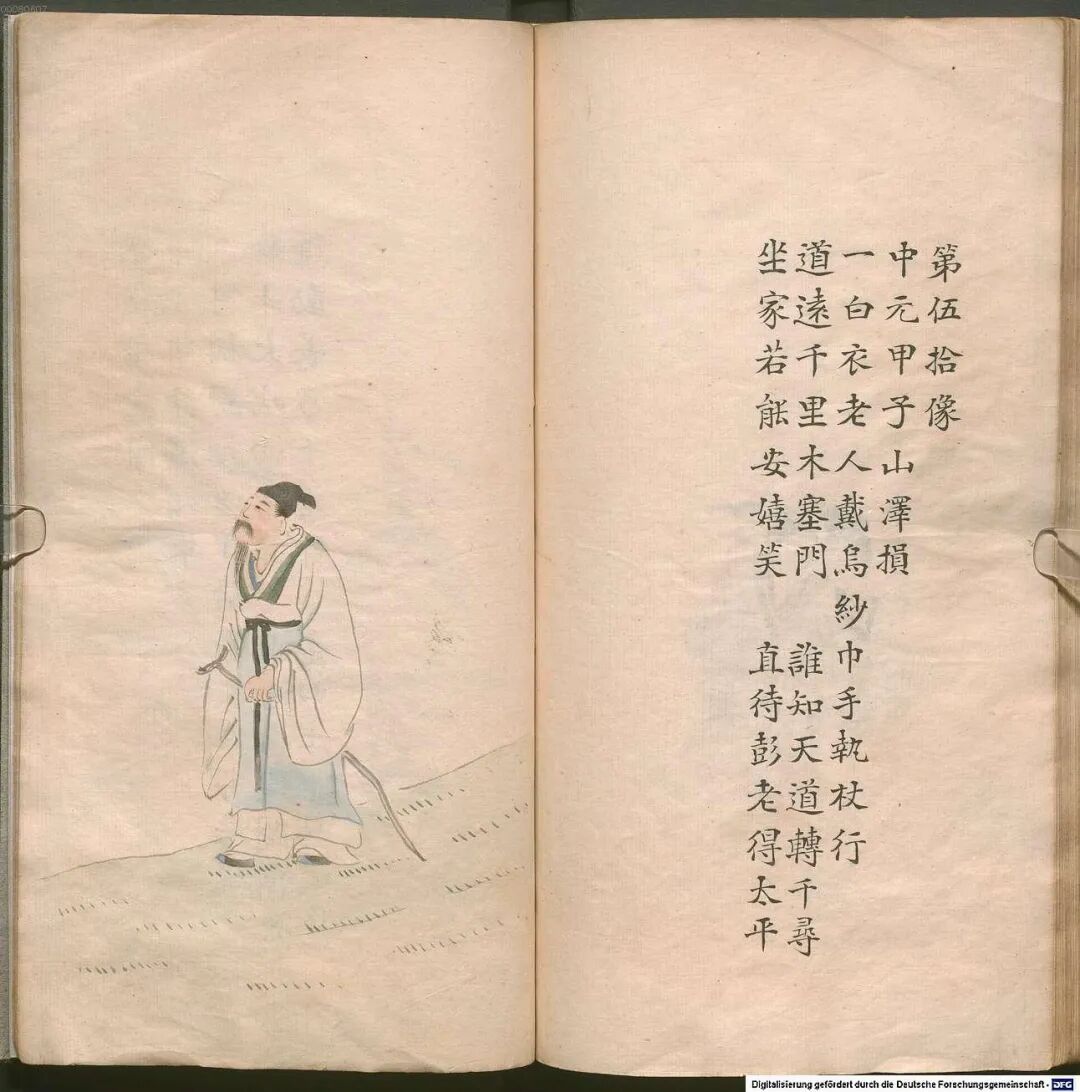 第伍拾像
中元甲子山澤損
一白衣老人戴烏紗巾手執杖行
道遠千里木塞門 誰知天道轉千尋
坐家若能安嬉笑 直待彭老得太平
00080607
Digitalisierung gefördert durch die Deutsche Forschungsgemeinschaft - DFG